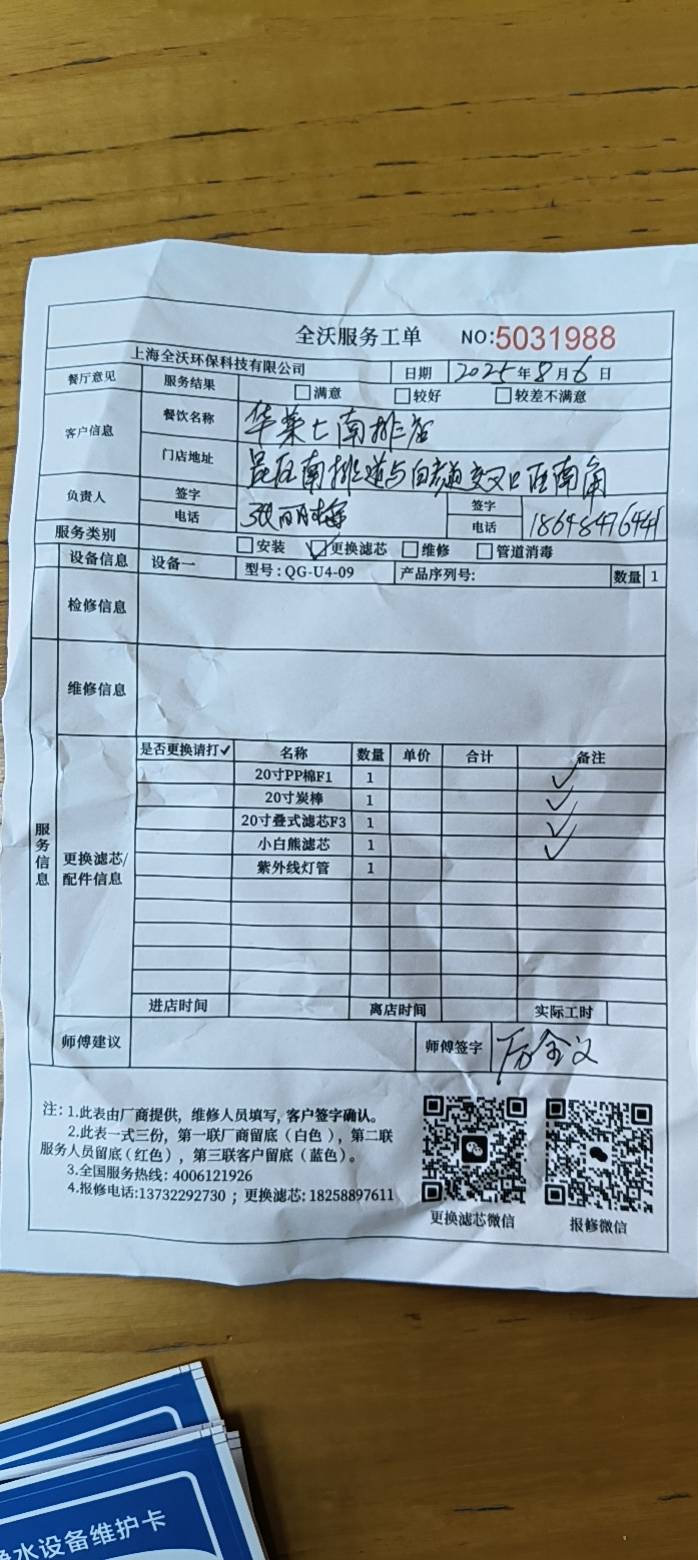 全沃服务工单 NO:5031988
上海全沃环保科技有限公司 日期 2025年8月6日
餐厅意见 服务结果 满意 较好 较差不满意
客户信息 餐饮名称 华莱士南排店
门店地址 南排道与 交叉口 南角
负责人 签字 签字
电话 张丽梅 电话 18648476441
服务类别 安装 ✓更换滤芯 维修 管道消毒
设备信息 设备一 型号:QG-U4-09 产品序列号: 数量 1
检修信息
维修信息
服务信息
更换滤芯/配件信息
是否更换请打✓ 名称 数量 单价 合计 备注
20寸PP棉F1 1 ✓
20寸炭棒 1 ✓
20寸叠式滤芯F3 1 ✓
小白熊滤芯 1 ✓
紫外线灯管 1
进店时间 离店时间 实际工时
师傅建议 师傅签字
注:1.此表由厂商提供,维修人员填写,客户签字确认。
2.此表一式三份,第一联厂商留底(白色),第二联
服务人员留底(红色),第三联客户留底(蓝色)。
3.全国服务热线:4006121926
4.报修电话:13732292730;更换滤芯:18258897611
更换滤芯微信 报修微信
水设备维护卡